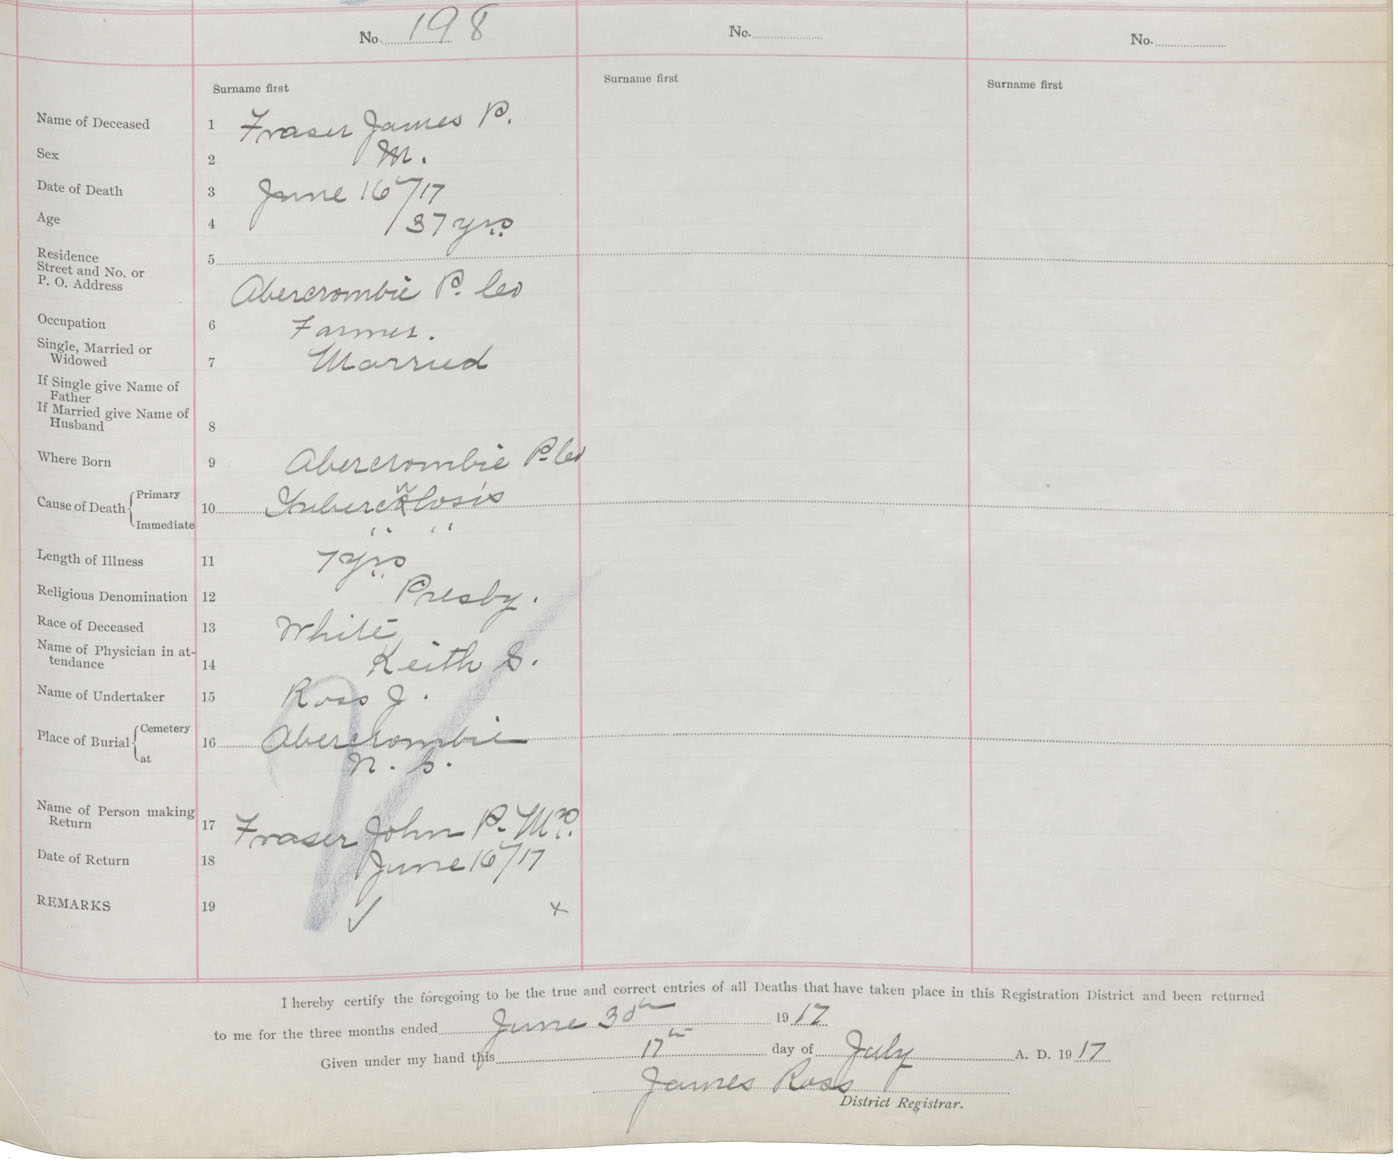 No. 198
No.
No.
Surname first
Surname first
Surname first
Name of Deceased 1 Fraser James P.
Sex 2 M.
Date of Death 3 June 16/17
Age 4 37 yrs
Residence
Street and No. or
P. O. Address 5 Abercrombie P. Co
Occupation 6 Farmer.
Single, Married or
Widowed 7 Married
If Single give Name of
Father
If Married give Name of
Husband 8
Where Born 9 Abercrombie P. Co
Cause of Death { Primary 10 Tuberculosis
Immediate " "
Length of Illness 11 7 yrs
Religious Denomination 12 Presby.
Race of Deceased 13 White
Name of Physician in at-
tendance 14 Keith S.
Name of Undertaker 15 Ross J.
Place of Burial { Cemetery 16 Abercrombie
at N. S.
Name of Person making
Return 17 Fraser John P. Mrs.
Date of Return 18 June 16/17
REMARKS 19 ✓ x
I hereby certify the foregoing to be the true and correct entries of all Deaths that have taken place in this Registration District and been returned
to me for the three months ended June 30th 1917
Given under my hand this 17th day of July A. D. 1917
James Ross
District Registrar.